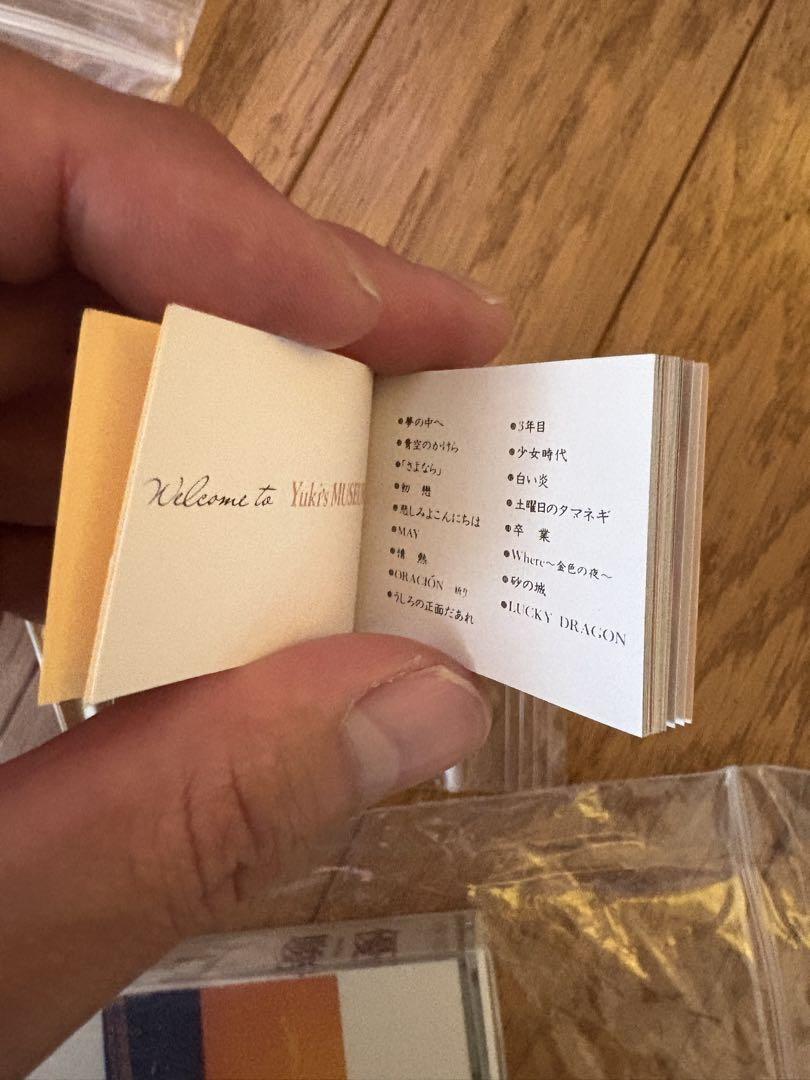 Welcome to Yuki's MUSEU
●夢の中へ
●青空のかけら
●「さよなら」
●初 戀
●悲しみよこんにちは
●MAY
●情 熱
●ORACIÓN 祈り
●うしろの正面だあれ
●3年目
●少女時代
●白い炎
●土曜日のタマネギ
●卒 業
●Where〜金色の夜〜
●砂の城
●LUCKY DRAGON